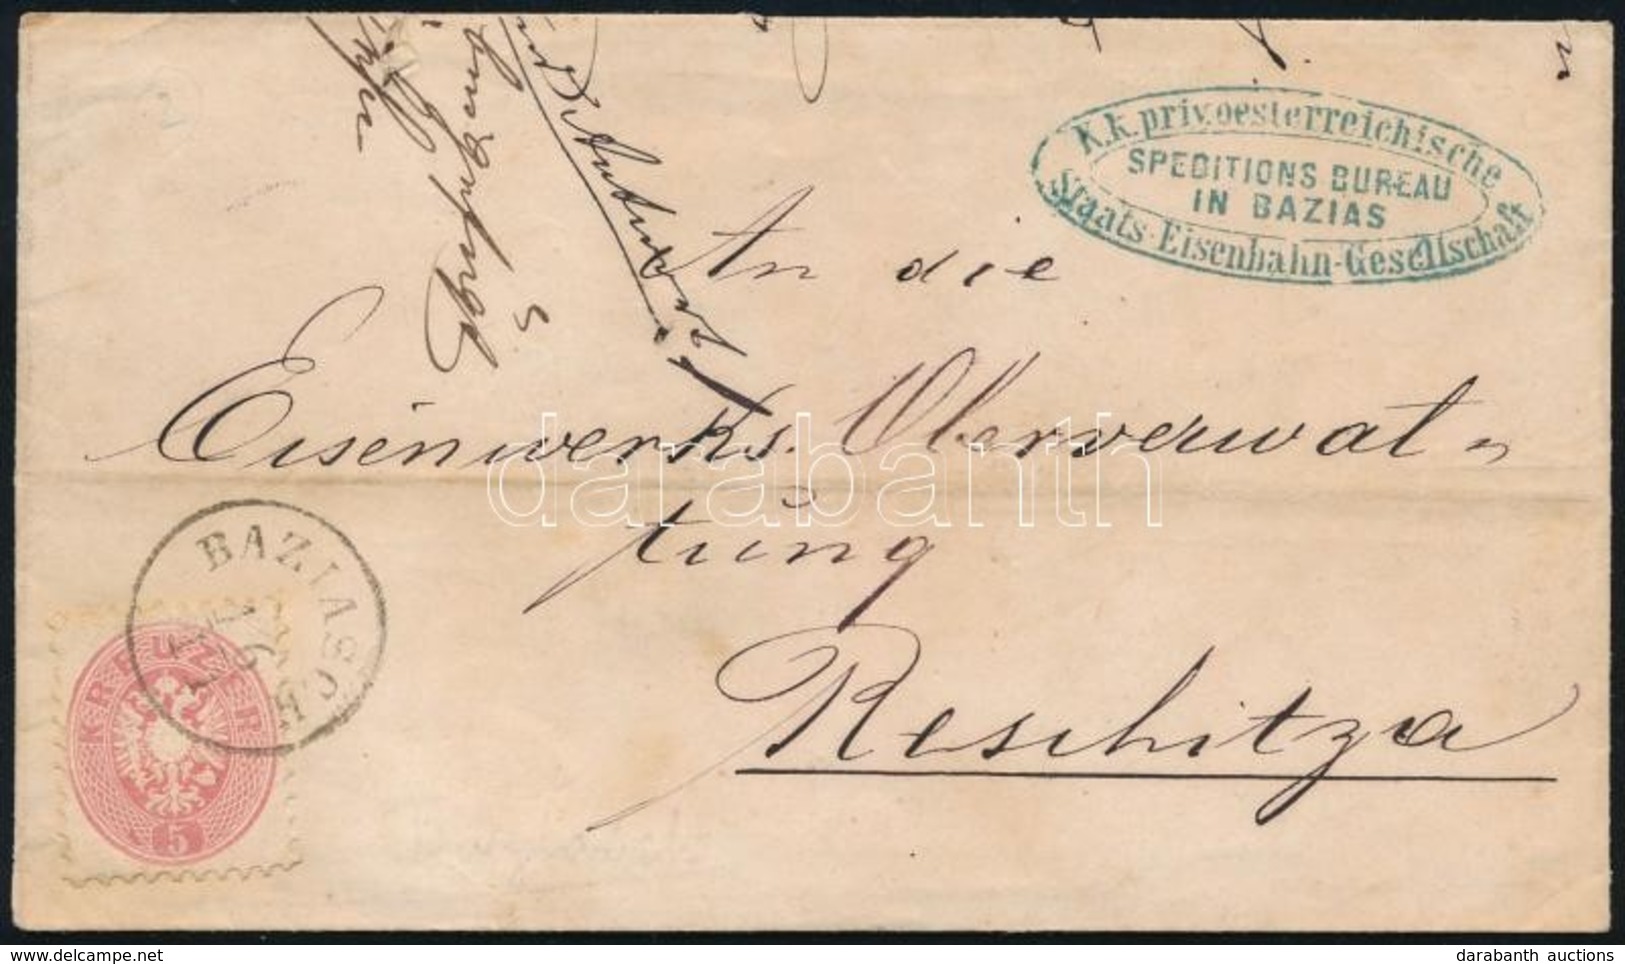 K.k. priv. oesterreichische
SPEDITIONS BUREAU
IN BAZIAS
Staats-Eisenbahn-Gesellschaft
An die
Eisenwerks. Oberverwal-
tung
Reschitza
darabanth
BAZIAS
KREUZER
5
darabanth auctions